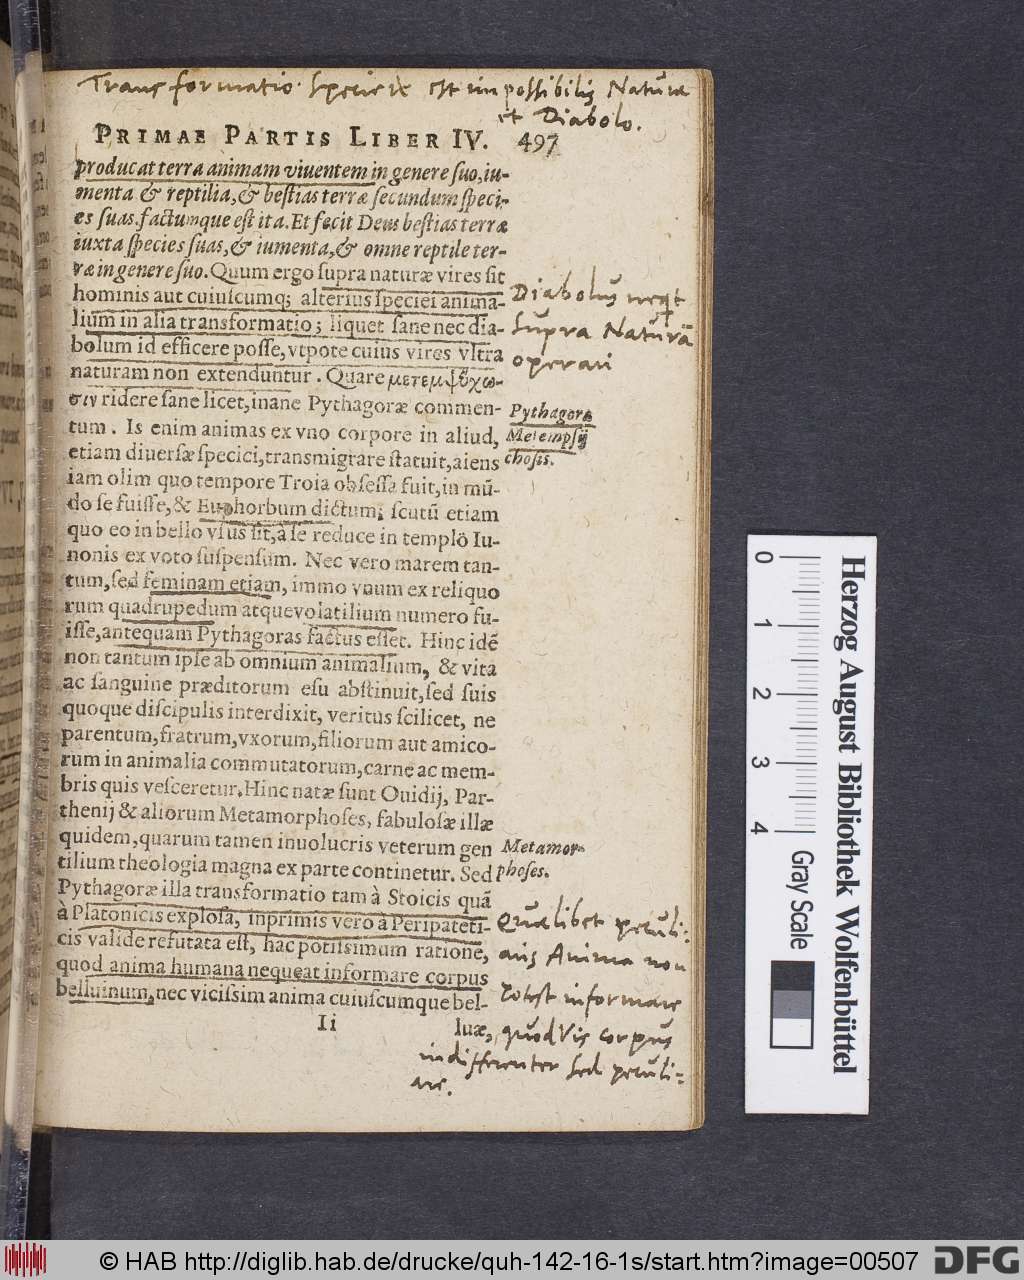 Transformatio speciei est impossibilis Naturæ
et Diabolo.
PRIMAE PARTIS LIBER IV. 497
producat terra animam viuentem in genere suo, iu-
menta & reptilia, & bestias terræ secundum speci-
es suas. factumque est ita. Et fecit Deus bestias terræ
iuxta species suas, & iumenta, & omne reptile ter-
ræ in genere suo. Quum ergo supra naturæ vires sit
hominis aut cuiuscumq; alterius speciei anima-
lium in alia transformatio; liquet sane nec dia-
bolum id efficere posse, vtpote cuius vires vltra
naturam non extenduntur. Quare μετεμψύχω-
σιν ridere sane licet, inane Pythagoræ commen-
tum. Is enim animas ex vno corpore in aliud,
etiam diuersæ specici, transmigrare statuit, aiens
iam olim quo tempore Troia obsessa fuit, in mū-
do se fuisse, & Euphorbum dictum; scutū etiam
quo eo in bello vsus sit, à se reduce in templô Iu-
nonis ex voto suspensum. Nec vero marem tan-
tum, sed feminam etiam, immo vnum ex reliquo
rum quadrupedum atque volatilium numero fu-
isse, antequam Pythagoras factus esset. Hinc idē
non tantum ipse ab omnium animalium, & vita
ac sanguine præditorum esu abstinuit, sed suis
quoque discipulis interdixit, veritus scilicet, ne
parentum, fratrum, vxorum, filiorum aut amico-
rum in animalia commutatorum, carne ac mem-
bris quis vesceretur. Hinc natæ sunt Ouidij, Par-
thenij & aliorum Metamorphoses, fabulosæ illæ
quidem, quarum tamen inuolucris veterum gen
tilium theologia magna ex parte continetur. Sed
Pythagoræ illa transformatio tam à Stoicis quā
à Platonicis explosa, inprimis vero à Peripateti-
cis valide refutata est, hac potissimum ratione,
quod anima humana nequeat informare corpus
belluinum, nec vicissim anima cuiuscumque bel-
Ii luæ,
Diabolus neqt
supra Naturā
operari
Pythagoræ
Metempsy
chosis.
Metamor-
phoses.
Quælibet peculi-
aris Anima non
potest informare
quodvis corpus
indifferenter sed peculi-
are.
0 1 2 3 4
Gray Scale
Herzog August Bibliothek Wolfenbüttel
© HAB http://diglib.hab.de/drucke/quh-142-16-1s/start.htm?image=00507 DFG